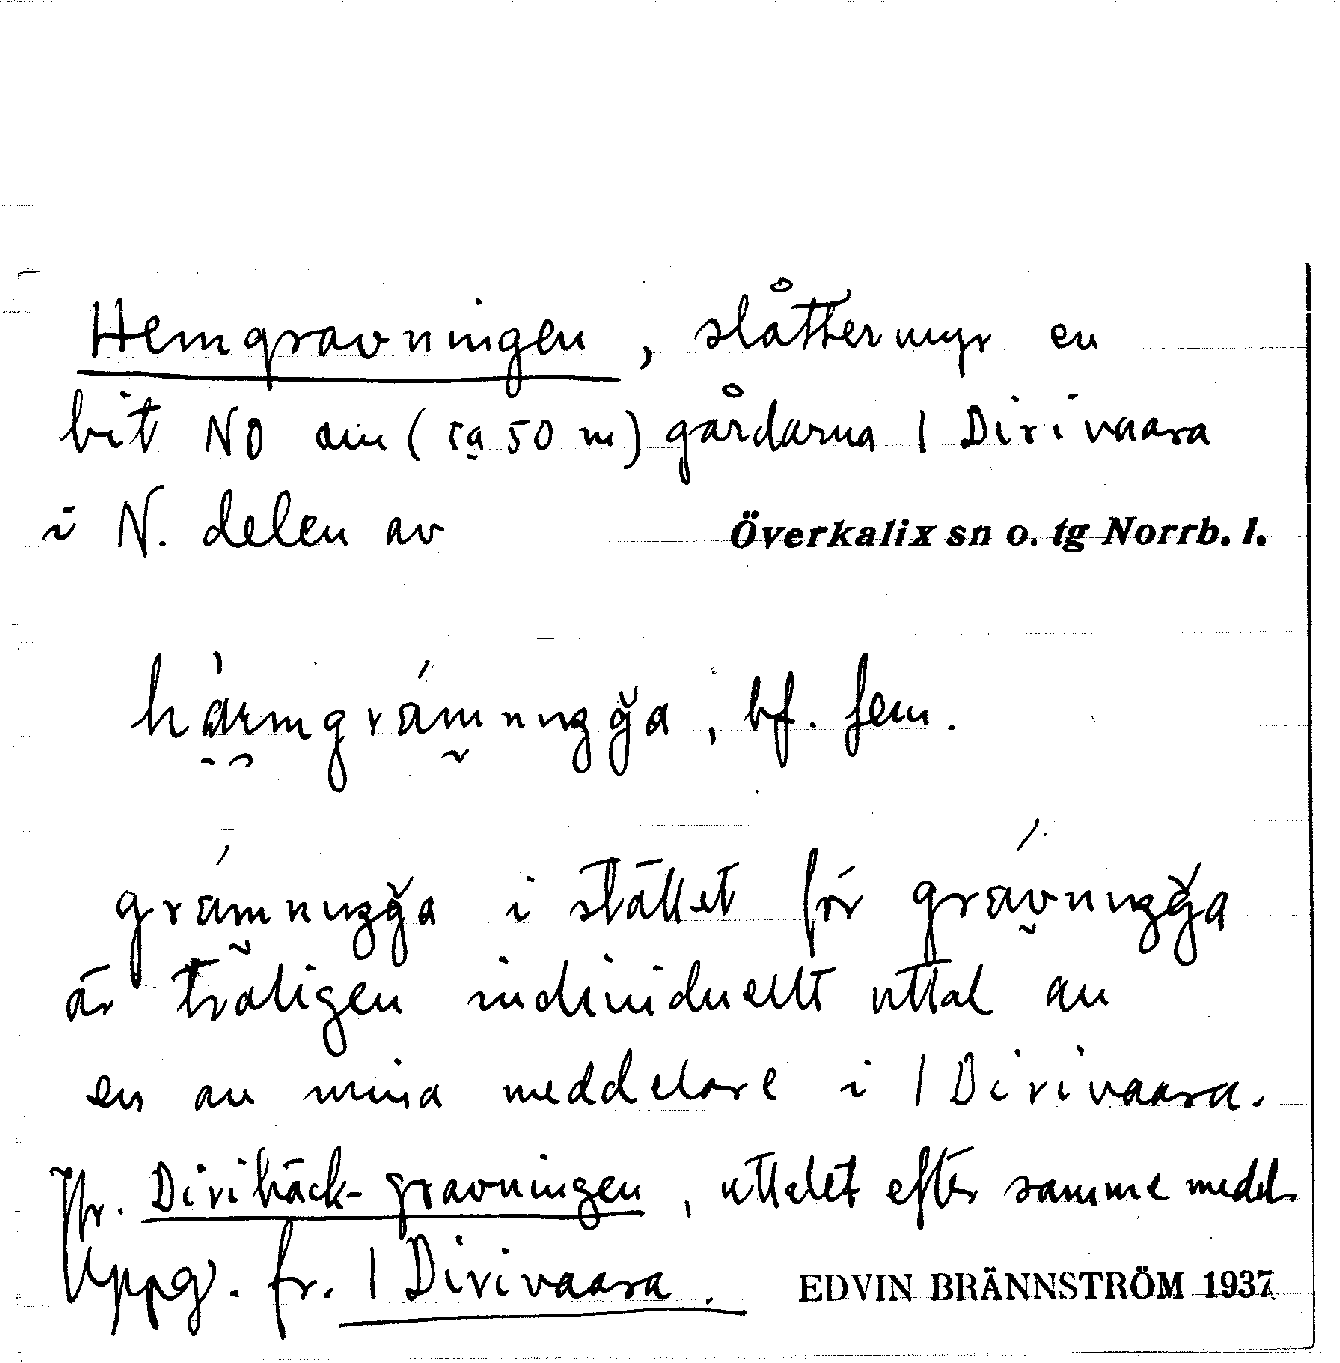 Hemgravningen, slåttermyr en
bit NO om (ca 50 m) gårdarna 1 Dirivaara
i N. delen av Överkalix sn o. tg Norrb. l.
bf. fem.
i stället för
är troligen individuellt uttal av
en av mina meddelare i 1 Dirivaara.
Jfr. Diribäck-gravningen, uttalet efter samme medd.
Uppg. fr. 1 Dirivaara. EDVIN BRÄNNSTRÖM 1937